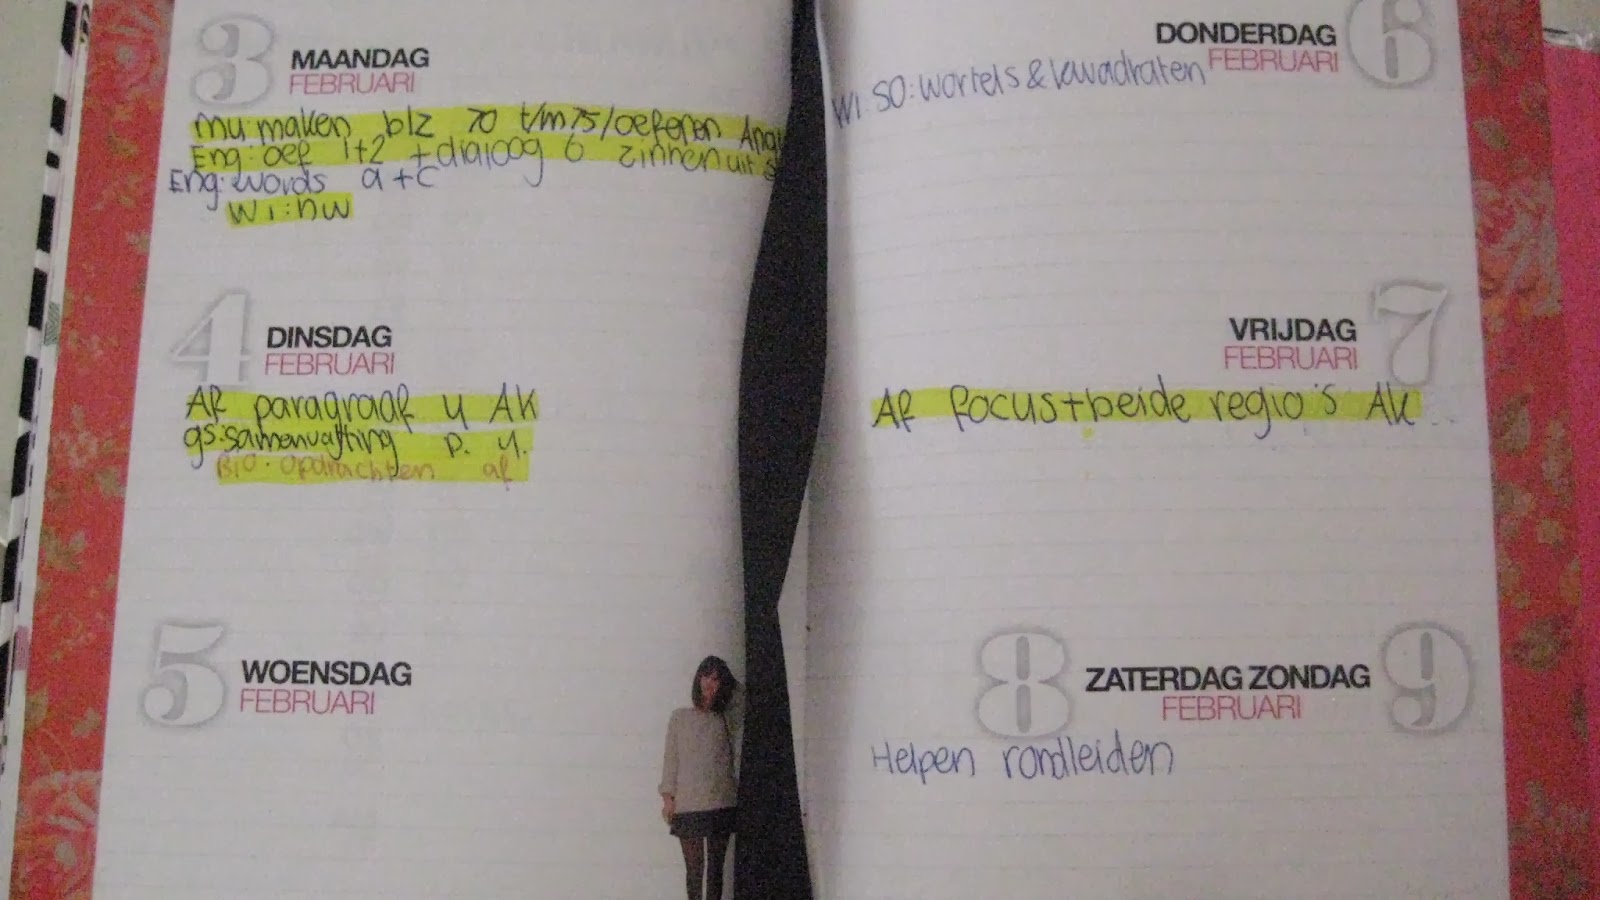 3
MAANDAG
FEBRUARI
mu: maken blz 70 t/m 75/oefenen
Eng: oef 1+2 + dialoog 6 zinnen uit
Eng: words a+c
Wi: hw
4
DINSDAG
FEBRUARI
Af paragraaf 4 AK
gs: samenvatting p. 4.
Bio: opdrachten af
5
WOENSDAG
FEBRUARI
DONDERDAG 6
FEBRUARI
Wi: SO: wortels & kwadraten
VRIJDAG 7
FEBRUARI
Af focus+beide regio's AK
8 ZATERDAG ZONDAG 9
FEBRUARI
Helpen rondleiden